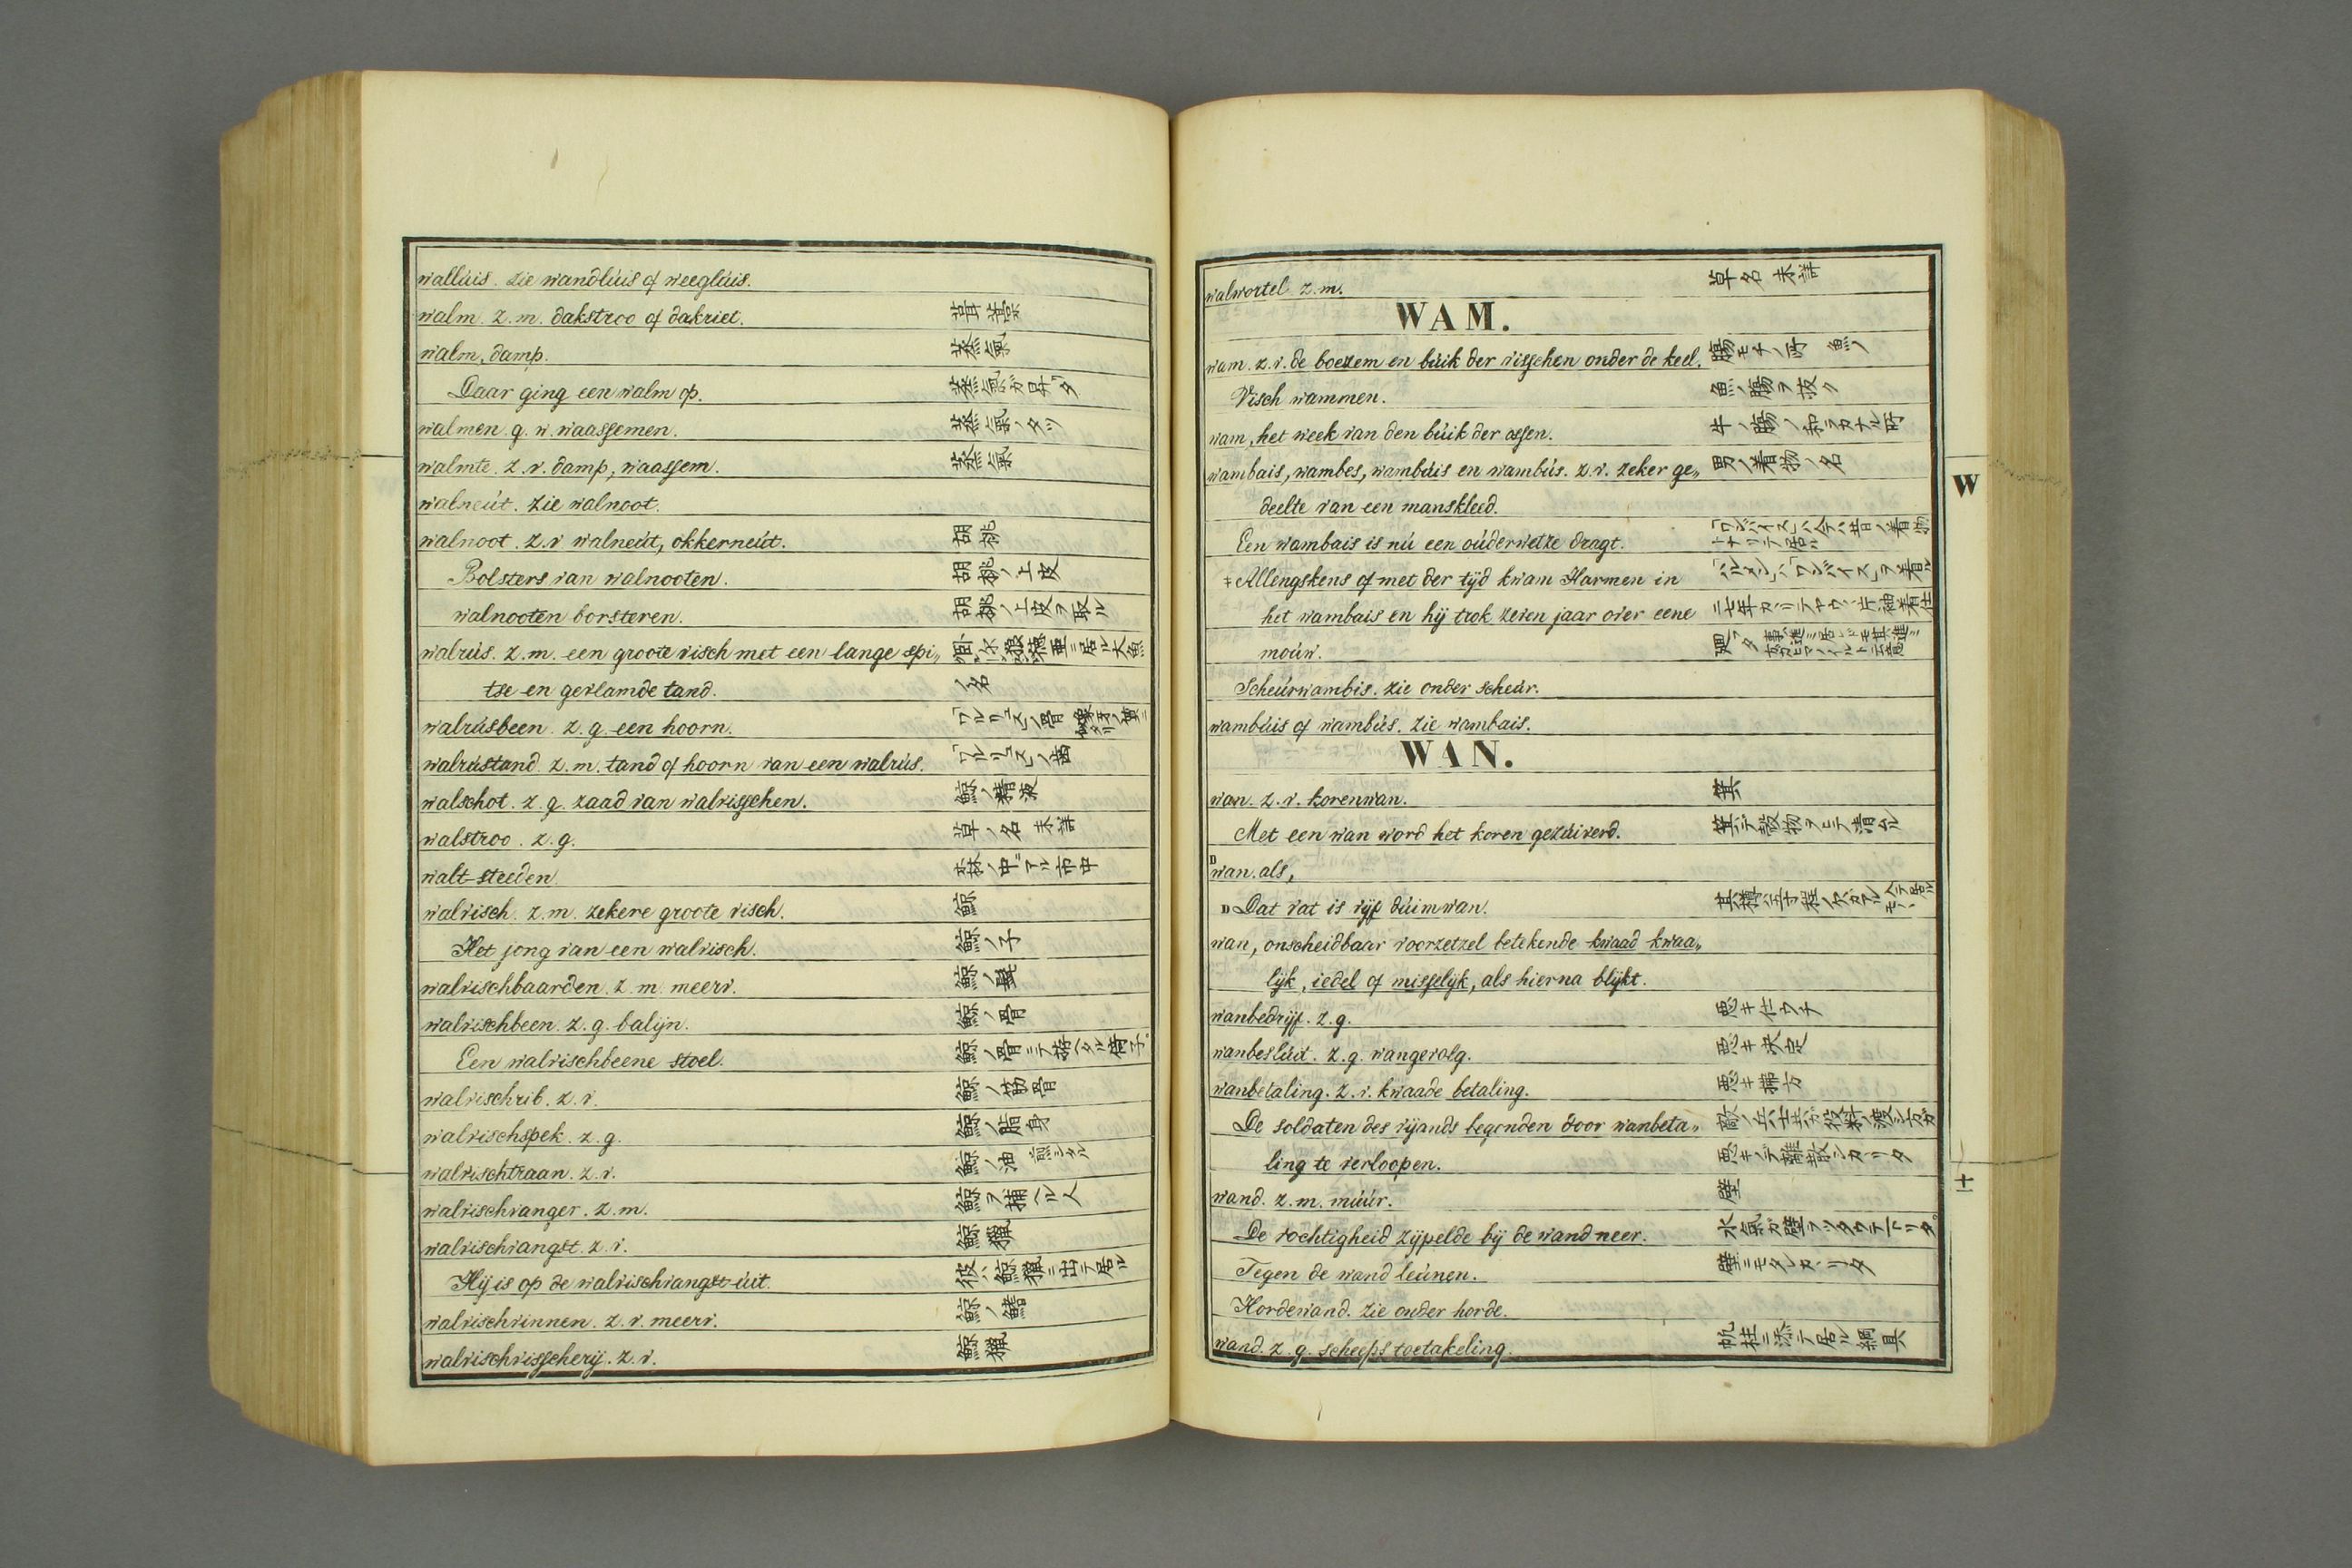 walluis. zie wandluis of weegluis.
walm. z. m. dakstroo of dakriet. 葺藁
walm, damp. 蒸氣
Daar ging een walm op. 蒸氣ガ昇リタ
walmen. g. w. waassemen. 蒸氣ノタツ
walmte. z. v. damp, waassem. 蒸氣
walneút. zie walnoot.
walnoot. z. v walneút, okkerneút. 胡桃
Bolsters van walnooten. 胡桃ノ上皮
walnooten borsteren. 胡桃ノ上皮ヲ取ル
walrús. z. m. een groote visch met een lange spi„ 臥兒狼德亜ニ居ル大魚
tse en gevlamde tand. ノ名
walrúsbeen. z. g. een hoorn. 「ワルリュス」ノ骨
walrústand. z. m. tand of hoorn van een walrús. 「ワルリュス」ノ歯
walschot. z. g. zaad van walvisschen. 鯨ノ精液
walstroo. z. g. 草ノ名 未詳
walt-steeden 森ノ中ニアル市中
walvisch. z. m. zekere groote visch. 鯨
Het jong van een walvisch. 鯨ノ子
walvischbaarden. z. m. meerv. 鯨ノ鬚
walvischbeen. z. g. balijn. 鯨ノ骨
Een walvischbeene stoel. 鯨ノ骨ニテ拵ヘタル倚子
walvischrib. z. v. 鯨ノ筋骨
walvischspek. z. g. 鯨ノ脂身
walvischtraan. z. v. 鯨ノ油 煎シタル
walvischvanger. z. m. 鯨ヲ捕ヘル人
walvischvangst. z. v. 鯨獵
Hij is op de walvischvangst úit. 彼ハ鯨獵ニ出テ居ル
walvischvinnen. z. v. meerv. 鯨ノ鰭
walvischvisscherij. z. v. 鯨獵
walwortel z. m. 草名 未詳
WAM.
wam. z. v. de boezem en búik der visschen onder de keel. 腸モチノ所 魚ノ
Visch wammen. 魚ノ腸ヲ抜ク
wam, het week van den búik der ossen. 牛ノ腸ノ和ラカナル所
wambais, wambes, wambúis en wambús. z. v. zeker ge„ 男ノ着物ノ名
deelte van een manskleed.
Een wambais is nú een oúderwetze dragt. 「ワンバイス」ハ今ハ昔ノ着物トナリテ居ル
Allengskens of met der tijd kwam Harmen in 「ハルメン」ハ「ワンバイス」ヲ着ル
het wambais en hij trok zeven jaar over eene ニ七年カヽリテヤウ〱片袖着仕
moúw.
Scheúrwambis. zie onder scheúr.
wambúis of wambús. zie wambais.
WAN.
wan. z. v. korenwan. 箕
Met een wan word het koren gezúiverd. 箕ニテ穀物ヲヒテ清ムル
wan. als,
Dat vat is vijf dúimwan.
wan, onscheidbaar voorzetzel betekende kwaad kwaa„
lijk, iedel of misselijk, als hierna blijkt.
wanbedrijf. z. g. 悪キ仕ウチ
wanbeslúit. z. g. wangevolg. 悪キ決定
wanbetaling. z. v. kwaade betaling. 悪キ拂方
De soldaten des vijands begonden door wanbeta„ 敵ノ兵士共ガ役料ノ渡シ方ガ
ling te verloopen. 悪キニテ離散シカヽリタ
wand. z. m. múúr. 壁
De vochtigheid zijpelde bij de wand neer. 水氣ガ壁ヲツタウテ下リタ
Tegen de wand leúnen. 壁ニモタレカヽリタ
Hordewand. zie onder horde.
wand. z. g. scheeps toetakeling. 帆柱ニ添テ居ル綱具
W
十一